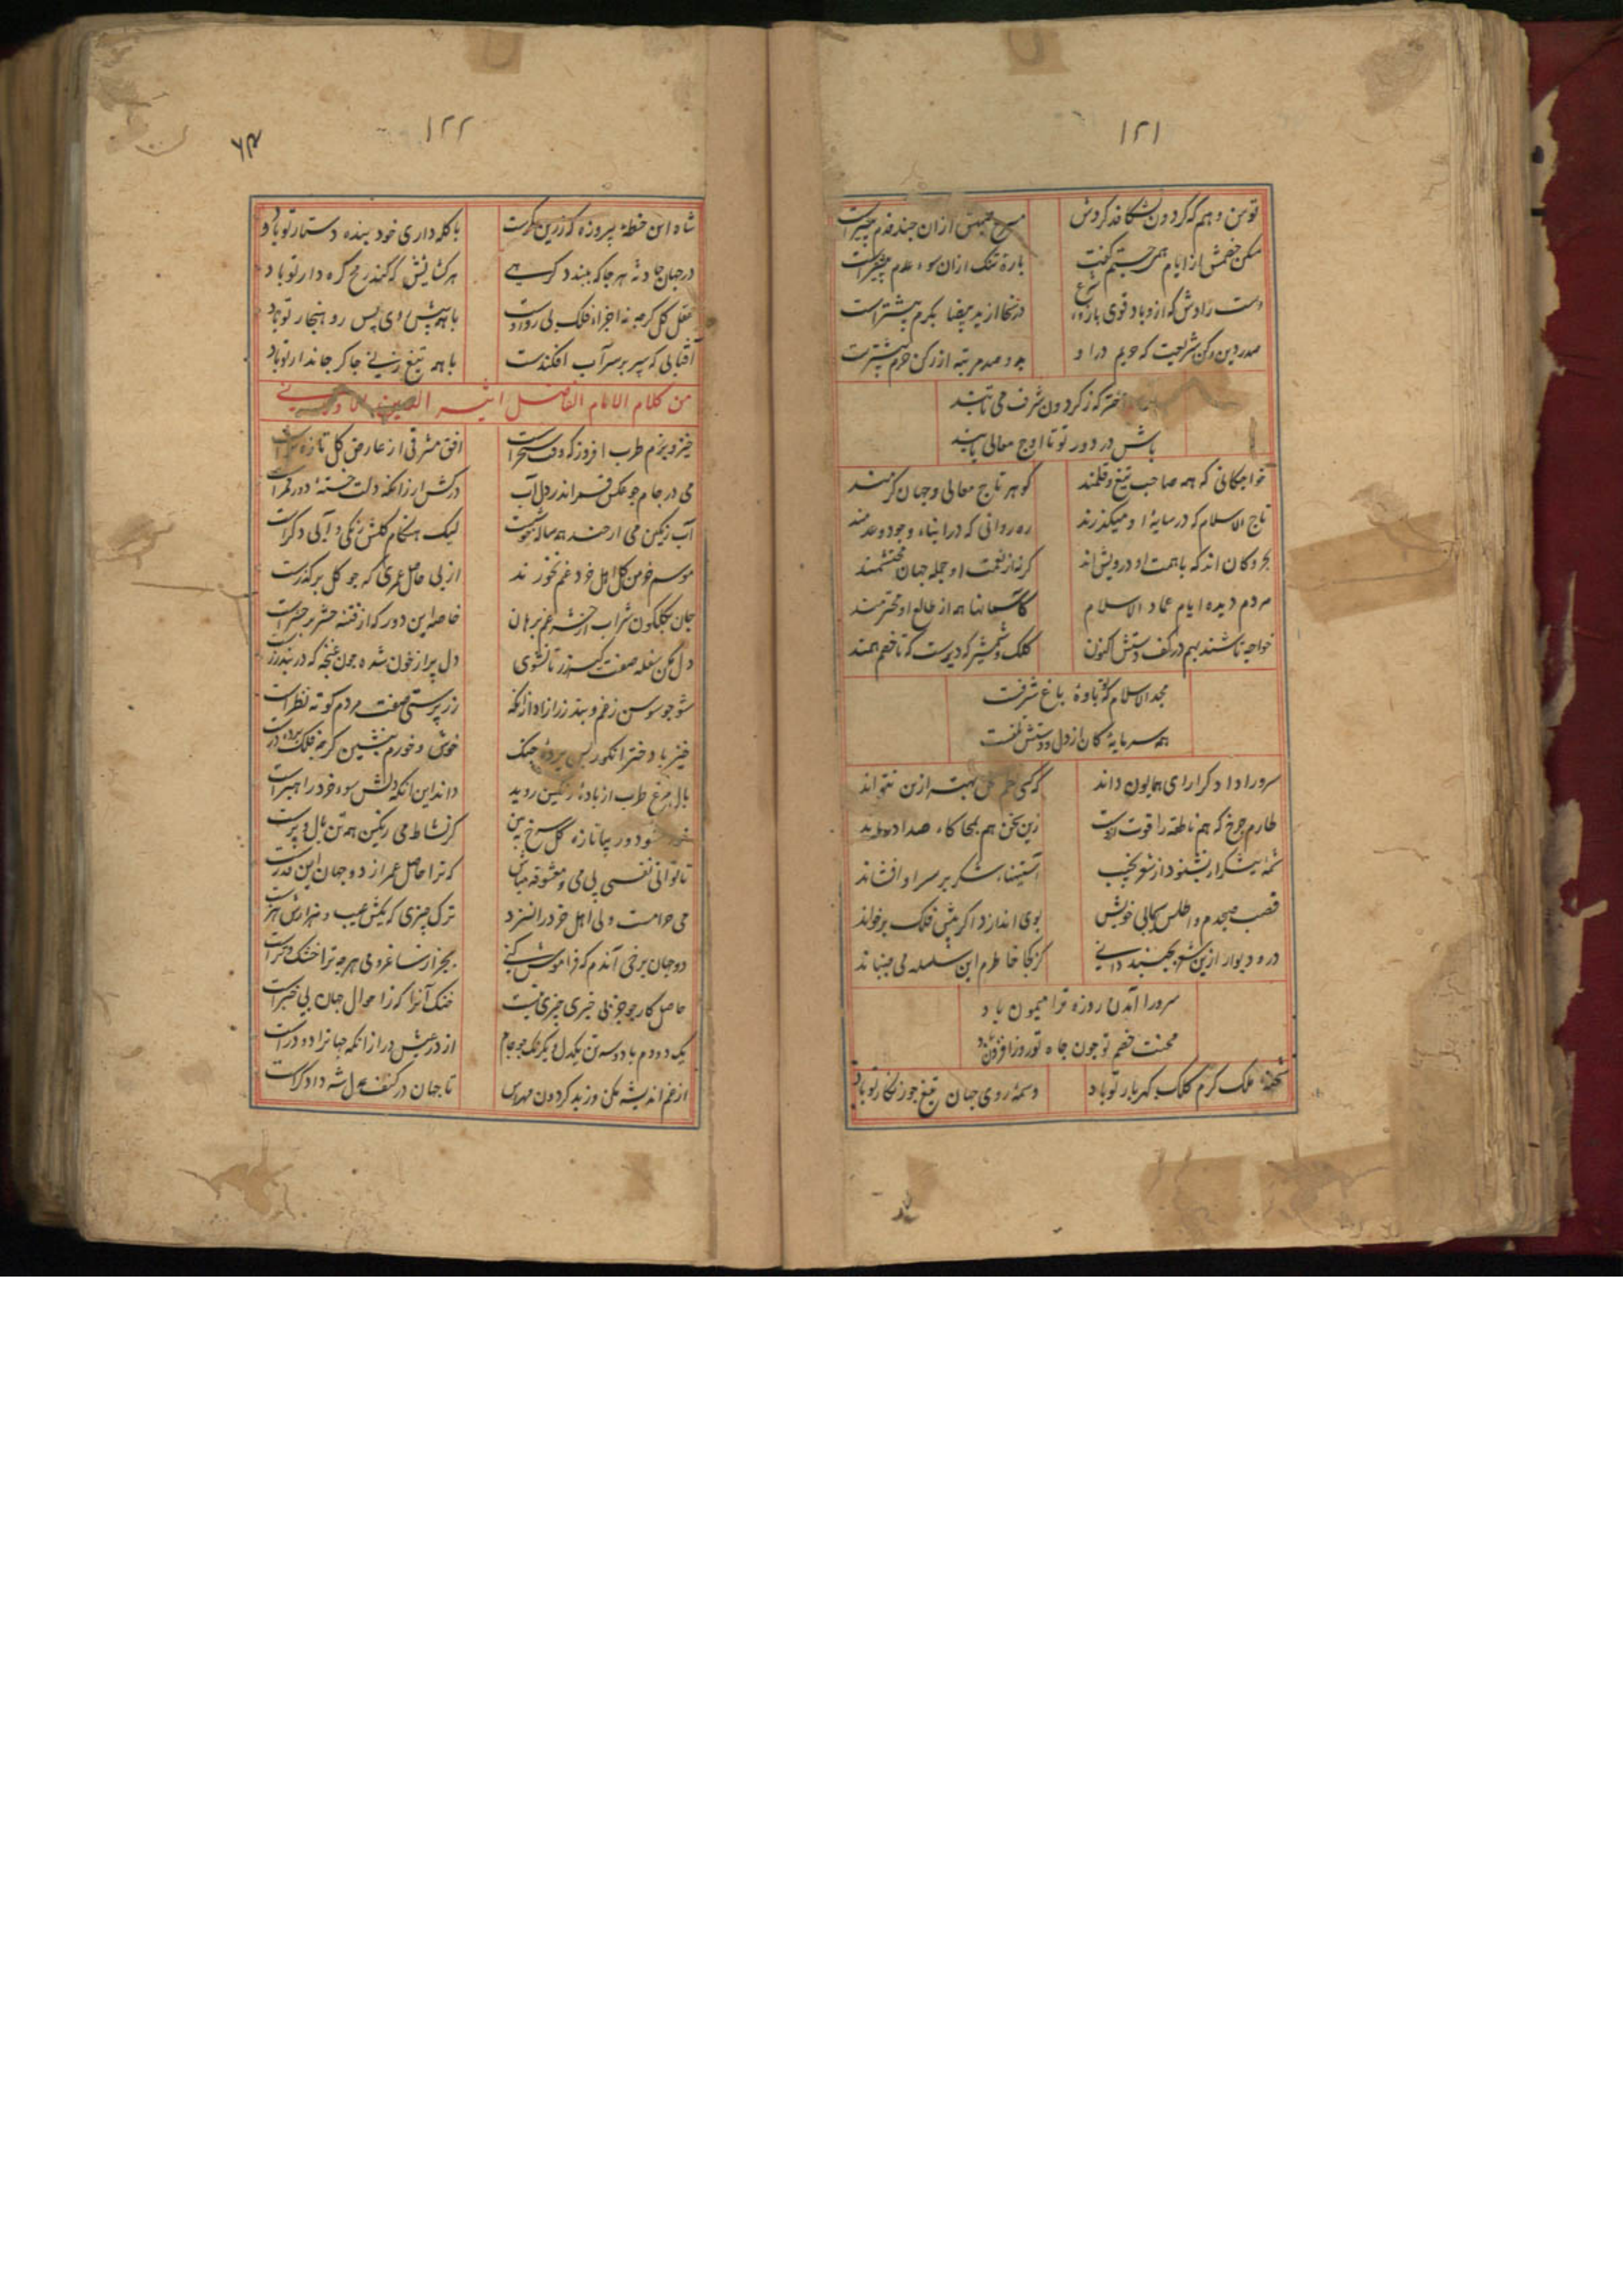 ۱۲۱
توسن وهم که گردون بشکافد گردش ازان چند قدم
مکن خصمش از ایام همی جستم گفت بارۀ تنک ازان سوء عدم
دست رادش که ازو باد قوی بازوء شرع در سخا از ید بیضا بکرم بیشترست
صدر دین رکن شریعت که حریم در او بدو صد مرتبه از رکن حرم بیشترست
اختر که ز گردون شرف می تابند
باش در دور تو تا اوج معالی یابند
خواجگانی که همه صاحب تیغ و قلمند گوهر تاج معالی و جهان کرمند
تاج الاسلام که در سایۀ او میگذرند ره روانی که در ابناء وجود و عدمند
بحر و کان اند که با همت او درویش اند گر نه از نعمت او جمله جهان محتشمند
مردم دیده ایام عماد الاسلام کاسمانها همه از طالع او محترمند
خواجه تاشند بهم در کف دستش اکنون کلک و شمشیر که دیریست که تا خصم همند
مجد الاسلام که نوباوۀ باغ شرفست
همه سرمایۀ کان از دل و دستش تلفست
سرورا دادگرا رای همایون داند که کسی بهتر ازین نتواند
طارم چرخ که هم ناطقه را قوت ازوست زین سخن هم بمحاکاء صدا درماند
نکته ایشکر ار بشنود از شعر نجیب آستینهاء شکر بر سر او افشاند
قصب صبحدم و اطلس کحلی خویش بوی اندازد اگر پیش فلک برخواند
در و دیوار ازین شعر بجنبد دانی کز کجا خاطرم این سلسله می جنباند
سرورا آمدن روزه ترا میمون باد
محنت خصم تو چون جاه تو روز افزون باد
شحنۀ ملک کرم کلک گهربار تو باد وسمۀ روی جهان تیغ چو زنگار تو باد
۱۲۲
شاه این خطۀ پیروزه که زرین کمرست با کله داری خود بنده دستار تو باد
در جهان حادثه هر جا که ببندد گرهی هر گشایش که کند رمح گره دار تو باد
عقل کل گرچه نه اجزاء فلک پی رو اوست با همه پیش روی پس رو هنجار تو باد
آفتابی که سپر بر سر آب افکندست با همه تیغ زنی چاکر جاندار تو باد
من کلام الامام الفاضل اثیر الدین الاومانی
خیز و بزم طرب افروز که وقت سحرست افق مشرقی از عارض گل تازه ترست
می در جام چو عکس قمر اندر دل آب درکش ار زانکه دلت خستۀ دور قمرست
آب رنگین می ار چند همه ساله خوشست لیک هنگام گلش رنگی و آبی دگرست
موسم خرمن گل اهل خرد غم نخورند از پی حاصل عمری که چو گل بر گذرست
جان بگلگون شراب از حشر غم برهان خاصه این دور که از فتنه حشر بر حشرست
دل مکن سفله صفت کیسه زر تا نشوی دل پر از خون شده چون غنچه که در بند زرست
شو چو سوسن ز غم و بند زر آزاد ازانکه زر پرستی صفت مردم کوته نظرست
خیز با دختر انگور پس پردۀ چنگ خوش و خرم بنشین گرچه فلک پرده درست
بال مرغ طرب از بادۀ رنگین روید داند این آنکه دلش سوء خرد راهبرست
خود بیا تازه گل سرخ ببین کز نشاط می رنگین همه تن بال و پرست
تا توانی نفسی بی می و معشوقه مباش که ترا حاصل عمر از دو جهان این قدرست
می حرامست ولی اهل خرد را نسزد ترک چیزی که یکش عیب و هزارش هنرست
دو جهان بر خی آندم که فراموش کنی بجز از ساغر و می هر چه ترا خشک و ترست
حاصل کار چو جز بی خبری چیزی نیست خنک آنرا که ز احوال جهان بی خبرست
یک دو دم با دو سه تن یکدل و یکرنگ چو جام از در عیش درآ زانکه جهانرا دو درست
از غم اندیشه مکن وز بد گردون مهراس تا جهان در کنف عدل شه دادگرست